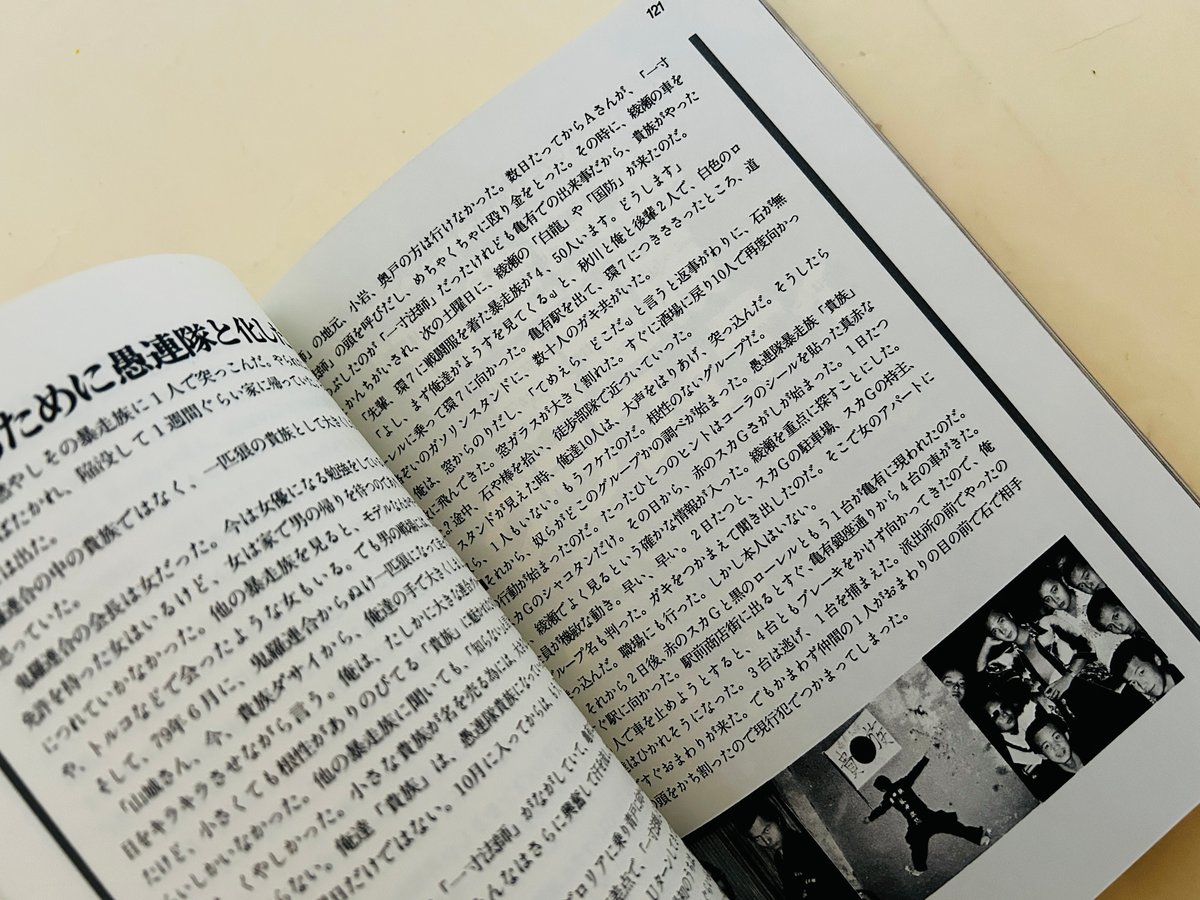 ために愚連隊と化した
燃やしその暴走族に1人で突っこんだ。やら
ばたかれ、陥没して1週間ぐらい家に帰ってい
は出た。
連合の中の貴族ではなく、一匹狼の貴族として大き
思っていた。
鬼羅連合の会長は女だった。今は女優になる勉強をしてい
免許を持った女はいるけど、女は家で男の帰りを待つので
につれていかなかった。他の暴走族を見ると、モデルなん
や、トルコなどで会ったような女もいる。でも男の職場に
そして、79年6月に、鬼羅連合からぬけ一匹狼になって
「山城さん、今、貴族ダサイから、俺達の手で大きくし
目をキラキラさせながら言う。俺は、たしかに大きな連合
だけど、小さくても根性がありのびてる「貴族」に魅
いしかいなかった。他の暴走族に聞いても、「知らない
くやしかった。小さな貴族が名を売る為には、
らない。俺達「貴族」は、愚連隊貴族になって
日だけではない。10月に入ってからは
「一寸法師」がながしていて、
んなはさらに興奮して
グロリアに乗り
121
の地元、小岩、奥戸の方は行けなかった。数日たってからAさんが、「一寸
法師」の頭を呼びだし、めちゃくちゃに殴り金をとった。その時に、綾瀬の車を
ばしたのが「一寸法師」だったけれども亀有での出来事だから、貴族がやった
かんちがいされ、次の土曜日に、綾瀬の「白龍」や「国防」が来たのだ。
「先輩、環7に戦闘服を着た暴走族が4、50人います。どうします」
「よし、まず俺達がようすを見てくる。」と、秋川と俺と後輩2人で、白色のロ
ーレルに乗って環7に向かった。亀有駅を出て、環7につきささったところ、道
ぞいのガソリンスタンドに、数十人のガキ共がいた。
俺は、窓からのりだし、「てめえら、どこだ。」と言うと返事がわりに、石が無
に飛んできた。窓ガラスが大きく割れた。すぐに酒場に戻り10人で再度向かっ
途中、石や棒を拾い、徒歩部隊で近づいていった。
スタンドが見えた時、俺達10人は、大声をはりあげ、突っ込んだ。そうしたら
、1人もいない。もうフケたのだ。根性のないグループだ。
それから、奴らがどこのグループかの調べが始まった。愚連隊暴走族「貴族」
行動が始まったのだ。たったひとつのヒントはユーラのシールを貼った真赤な
スカGのシャコタンだけ。その日から、赤のスカGさがしが始まった。1日たつ
、綾瀬でよく見るという確かな情報が入った。綾瀬を重点に探すことにした。
員が機敏な動き。早い、早い。2日たつと、スカGの駐車場、スカGの持主、
ループ名も判った。ガキをつかまえて聞き出したのだ。そこで女のアパートに
っ込んだ。職場にも行った。しかし本人はいない。
それから2日後、赤のスカGと黒のローレルともう1台が亀有に現われたのだ。
ぐ駅に向かった。駅前商店街に出るとすぐ、亀有銀座通りから4台の車がきた。
人で車を止めようとすると、4台ともブレーキをかけず向かってきたので、俺
はひかれそうになった。3台は逃げ、1台を捕まえた。派出所の前でやったの
すぐおまわりが来た。でもかまわず仲間の1人がおまわりの目の前で石で相手
の頭をかち割ったので現行犯でつかまってしまった。